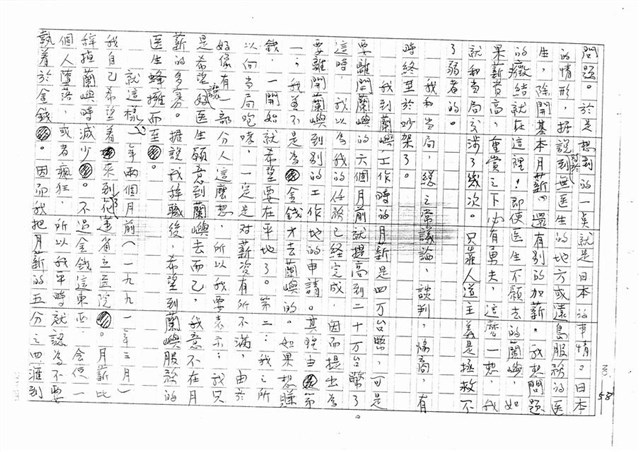 58
問題。於是想到的一点就是日本的事情。日本
的情形,據說到無医生的地方或還島服務的医
生,除開基本月薪,還有別的加薪。我想問題
的癥結就在這裡!即使医生不願去的蘭嶼,如
果薪資高,重賞之下必有勇夫,這麼一想,我
就和当局交涉了幾次。只是人道主義是拯救不
了弱者的。
我和当局,總之常議論,談判,協商,有
時終至於吵架了。
我到蘭嶼工作時的月薪是四万台幣,可是
要離開蘭嶼的六個月前就提高到二十万台幣了。
這時,我以為我的任務已經完成,因而提出為
要離開蘭嶼到別的工作地的申請。其理由第
一:我並不是為金錢才去蘭嶼的。如果想賺
錢,一開始就希望要在平地了。第二:我之所
以向当局吃咪,一定是对薪资有所不滿,由於
好像有一部分人這麼想,所以我要表示:我只
是希望讓医生願意到蘭嶼去而已,我並不在月
薪的多寡。据說我辞職後,希望到蘭嶼服務的
医生蜂擁而至。
就這樣,一年兩個月前(一九九一年三月)
我自己希望着來到花蓮省立医院。月薪比
辞掉蘭嶼時減少。不過金錢這東西,會使一
個人墮落,或者瘋狂,所以我平時就認為不要
執着於金錢。因而我把月薪的五分之四滙到